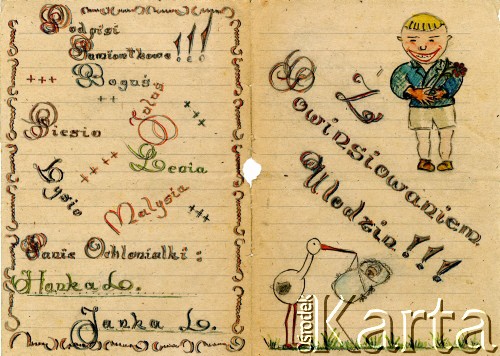 Podpisi
Pamiontkowe!!!
+++ Boguś +++
Luluś
Piesio
Lysio +++ Lesia
Malysia +++
Panie Ochlonialki:
Hanka L.
Janka L.
Z
Powinsiowaniem
Ulodzin!!!
Ośrodek
Karta